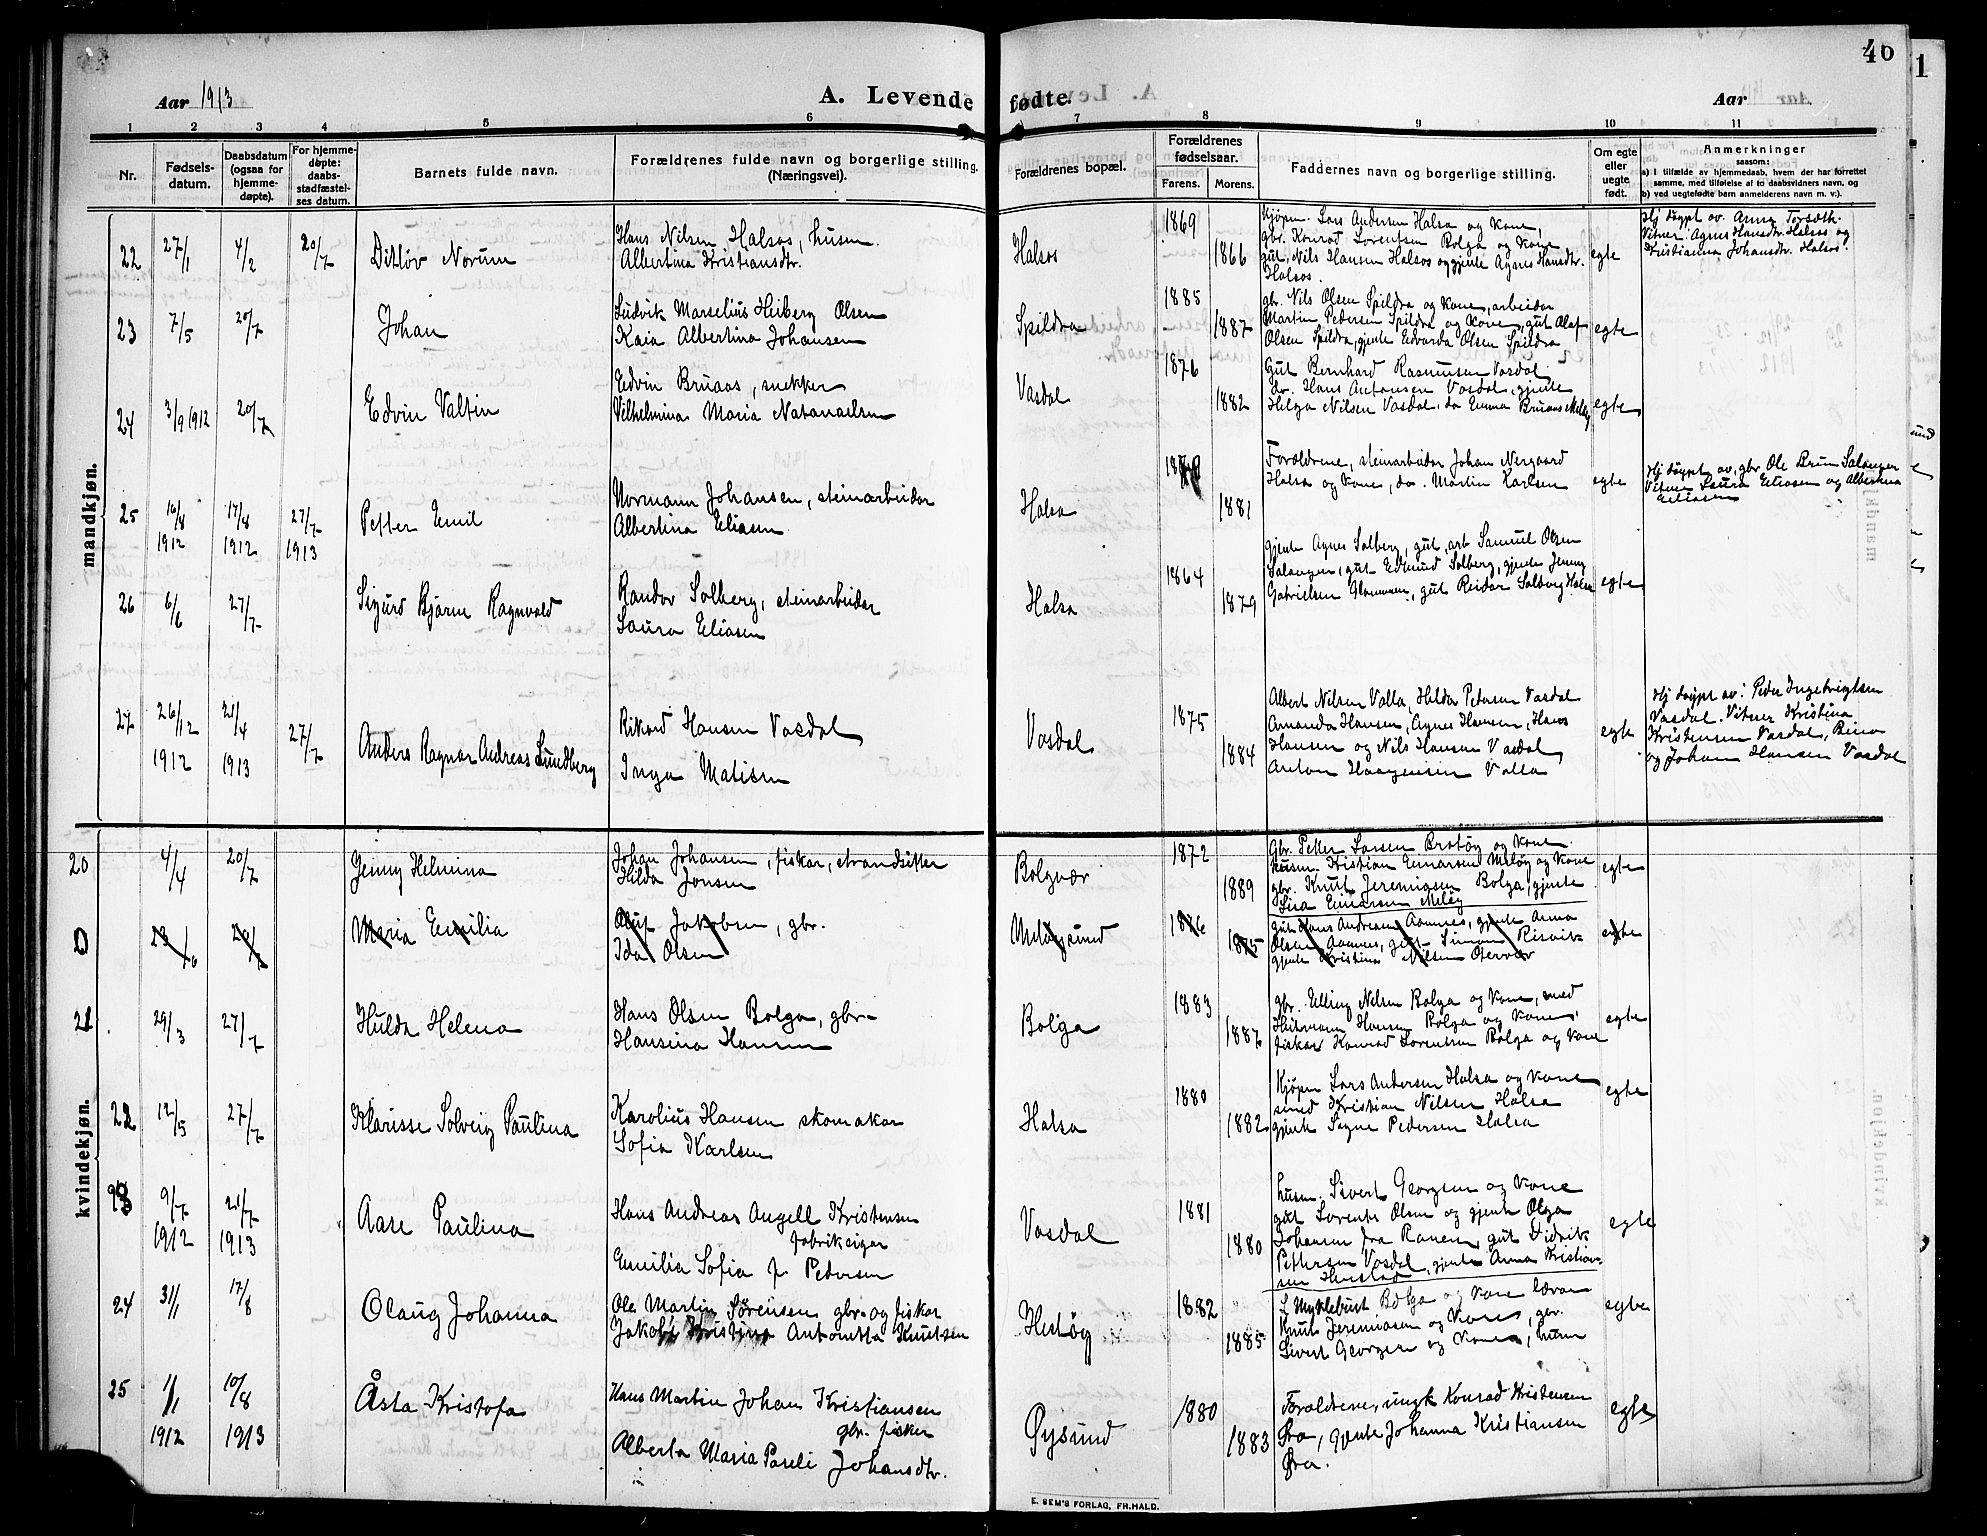 40
Aar 1913
A. Levende fødte.
Aar
1 2 3 4 5 6 7 8 9 10 11
Nr.
Fødsels-
datum.
Daabsdatum
(ogsaa for
hjemme-
døpte).
For hjemme-
døpte:
daabs-
stadfæstel-
ses datum.
Barnets fulde navn.
Forældrenes fulde navn og borgerlige stilling.
(Næringsvei).
Forældrenes bopæl.
Forældrenes
fødselsaar.
Farens. Morens.
Faddernes navn og borgerlige stilling.
Om egte
eller
uegte
født.
Anmerkninger
saasom:
a) I tilfælde av hjemmedaab, hvem der har forrettet
samme, med tilføielse af to daabsvidners navn, og
b) ved uegtefødte barn anmelderens navn m. v.).
mandkjøn.
22 27/1 4/2 20/7 Ditløv Norum
Hans Nilsen Halsos, husm.
Albertina Kristiansdtr.
Halsos 1869 1866
Kjøpm. Lars Andersen Halsa og kone,
gbr. Konrad Lorentsen Bolga og kone
gut, Nils Hansen Halsos og gjente Agnes Hansdtr.
Halsos.
egte
Hj døypt av. Anna Torseth.
Vitner Agnes Hansdtr. Halsos og
Kristianna Johansdtr. Halsos.
23 7/5 20/7 Johan
Ludvik Marselius Heiberg Olsen
Kaia Albertina Johansen
Spildra 1885 1887
gbr. Nils Olsen Spildra og kone, arbeidar
Martin Pedersen Spildra og kone, gut Olaf
Olsen Spildra, gjente Edvarda Olsen Spildra
egte
24 3/9 1912 20/7 Edvin Valtin
Edvin Bruaas, snekker
Vilhelmina Maria Natanaelsen
Vasdal 1876 1882
Gut Bernhard Rasmussen Vasdal
do. Hans Antonsen Vasdal, gjente
Helga Nilsen Vasdal, do Emma Bruaas Meløy
egte
25 16/8 1912 17/8 1912 27/7 1913 Petter Emil
Normann Johansen, steinarbeidar
Albertina Eliasen
Halsa 1881
Foraldrene, steinarbeidar Johan Nergaard
Halsa og kone, do. Martin Karlsen
egte
Hj døypt av. gbr. Ole Brun Salanger
Vitner Laura Eliasen og Albertina
Eliasen
26 6/6 27/7 Sigurd Bjarne Ragnvald
Randor Solberg, steinarbeidar
Laura Eliasen
Halsa 1864 1879
gjente Agnes Solberg, gut, arb Samuel Olsen
Salangen, gut Edmund Solberg, gjente Jenny
Gabrielsen Glommen, gut Reidar Solberg Halsa
egte
27 26/12 1912 21/4 1913 27/7 Anders Ragnar Andreas Lundberg
Rikard Hansen Vasdal
Inga Matisen
Vasdal 1875 1884
Albert Nilsen Valla, Hilda Petersen Vasdal
Amanda Hansen, Agnes Hansen, Hans
Hansen og Nils Hansen Vasdal,
Anton Haagensen Valla
egte
Hj døypt av: Peder Ingebrigtsen
Vasdal. Vitner Kristina
Kristensen Vasdal,
og Johan Hansen Vasdal
kvindekjøn.
20 4/4 20/7 Jenny Helmina
Johan Johansen, fiskar, strandsitter
Hilda Jonsen
Bolgvær 1872 1889
Gbr. Petter Larsen Brotøy og kone
husm. Kristian Einarsen Meløy og kone
gbr. Knut Jeremiasen Bolga, gjente
Lisa Einarsen Meløy
egte
0 Maria Emilia
Oluf Jakobsen, gbr.
Ida Olsen
Meløysund 1886 1875
gut Hans Andreasen Aamnes, gjente Anna
Olsen Aamnes, gut Simon Risvik
gjente Kristina Nilsen Otervær
egte
21 29/3 27/7 Hulda Helena
Hans Olsen Bolga, gbr.
Hansina Hansen
Bolga 1883 1887
gbr. Elling Nilsen Bolga og kone, smed
Heitmann Hansen Bolga og kone,
fiskar Konrad Lorentsen Bolga og kone
egte
22 12/5 27/7 Klarisse Solveig Paulina
Karolius Hansen skomakar
Sofia Karlsen
Halsa 1880 1882
Kjøpm Lars Andersen Halsa og kone
smed Kristian Nilsen Halsa
gjente Signe Pedersen Halsa
egte
23 9/7 1912 21/7 1913 Aase Paulina
Hans Andreas Angell Kristensen
fabrikeigar
Emilia Sofia f. Pedersen
Vasdal 1881 1880
husm. Sivert Georgsen og kone
gut Lorents Olsen og gjente Olga
Johansen fra Ranen, gut Didrik
Pettersen Vasdal, gjente Anna Kristian-
sen
egte
24 31/1 17/8 Olaug Johanna
Ole Martin Sørensen gbr. og fiskar
Jakobb Kristina Antonetta Knutsen
Hestøy 1882 1885
L Myklebust Bolga og kone lærar
Knut Jeremiasen og kone, gbr.
Sivert Georgsen og kone, husm
egte
25 1/1 1912 10/8 1913 Åsta Kristofa
Hans Martin Johan Kristiansen
gbr. fisker
Alberta Maria Pareli Johansdtr.
Øysund 1880 1883
Foraldrene, ungk Konrad Kristensen
Øra, gjente Johanna Kristiansen
Øra.
egte
E. SEM'S FORLAG, FR.HALD.